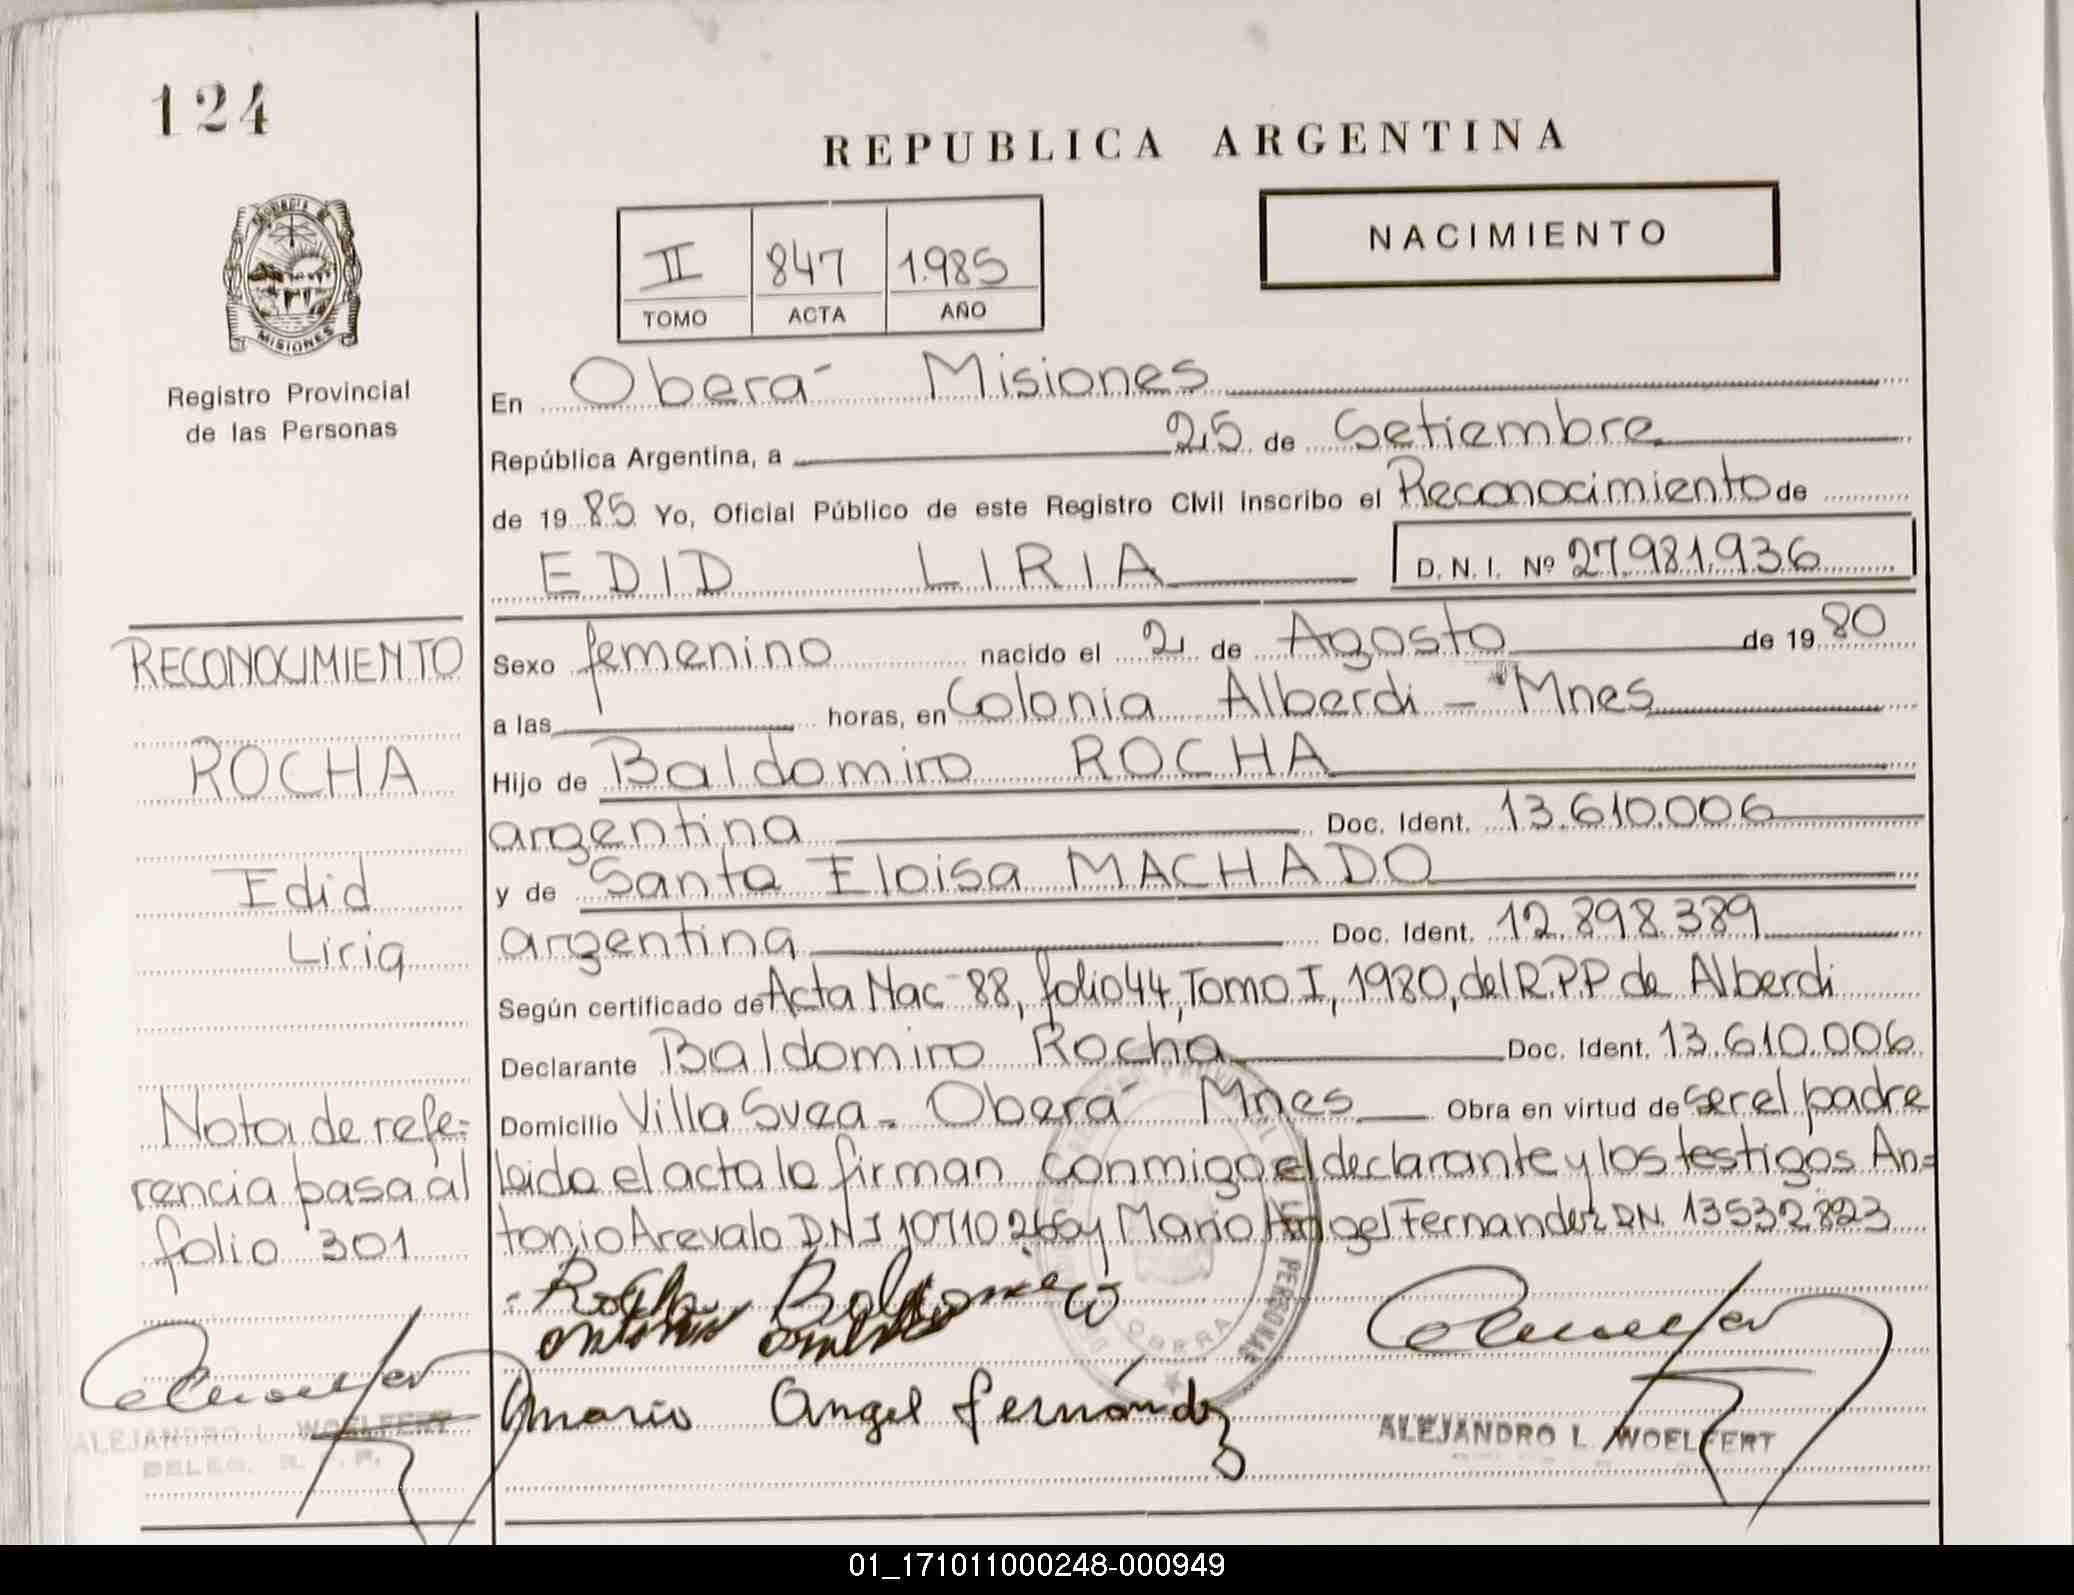 124
REPUBLICA ARGENTINA
NACIMIENTO
II 847 1.985
TOMO ACTA AÑO
PROVINCIA DE
MISIONES
Registro Provincial
de las Personas
En Oberá - Misiones
República Argentina, a 25 de Setiembre
de 19 85 Yo, Oficial Público de este Registro Civil inscribo el Reconocimiento de
EDID LIRIA D.N.I. Nº 27.981.936
Sexo femenino nacido el 2 de Agosto de 19 80
a las horas, en Colonia Alberdi - Mnes
Hijo de Baldomiro ROCHA
argentina Doc. Ident. 13.610.006
y de Santa Eloisa MACHADO
argentina Doc. Ident. 12.898.389
Según certificado de Acta Nac 88, folio 44, Tomo I, 1980, del R.P.P de Alberdi
Declarante Baldomiro Rocha Doc. Ident. 13.610.006
Domicilio Villa Svea - Oberá Mnes Obra en virtud de ser el padre
leida el acta la firman conmigo el declarante y los testigos An=
tonio Arevalo DNI 10710266 y Mario Angel Fernandez DN. 13532823
RECONOCIMIENTO
ROCHA
Edid
Liria
Nota de refe=
rencia pasa al
folio 301
Rocha Baldomero
Mario Angel Fernández
OBERA
PERSONAS
ALEJANDRO L. WOELFERT
DELEG. R. P. P.
ALEJANDRO L. WOELFERT
01_171011000248-000949